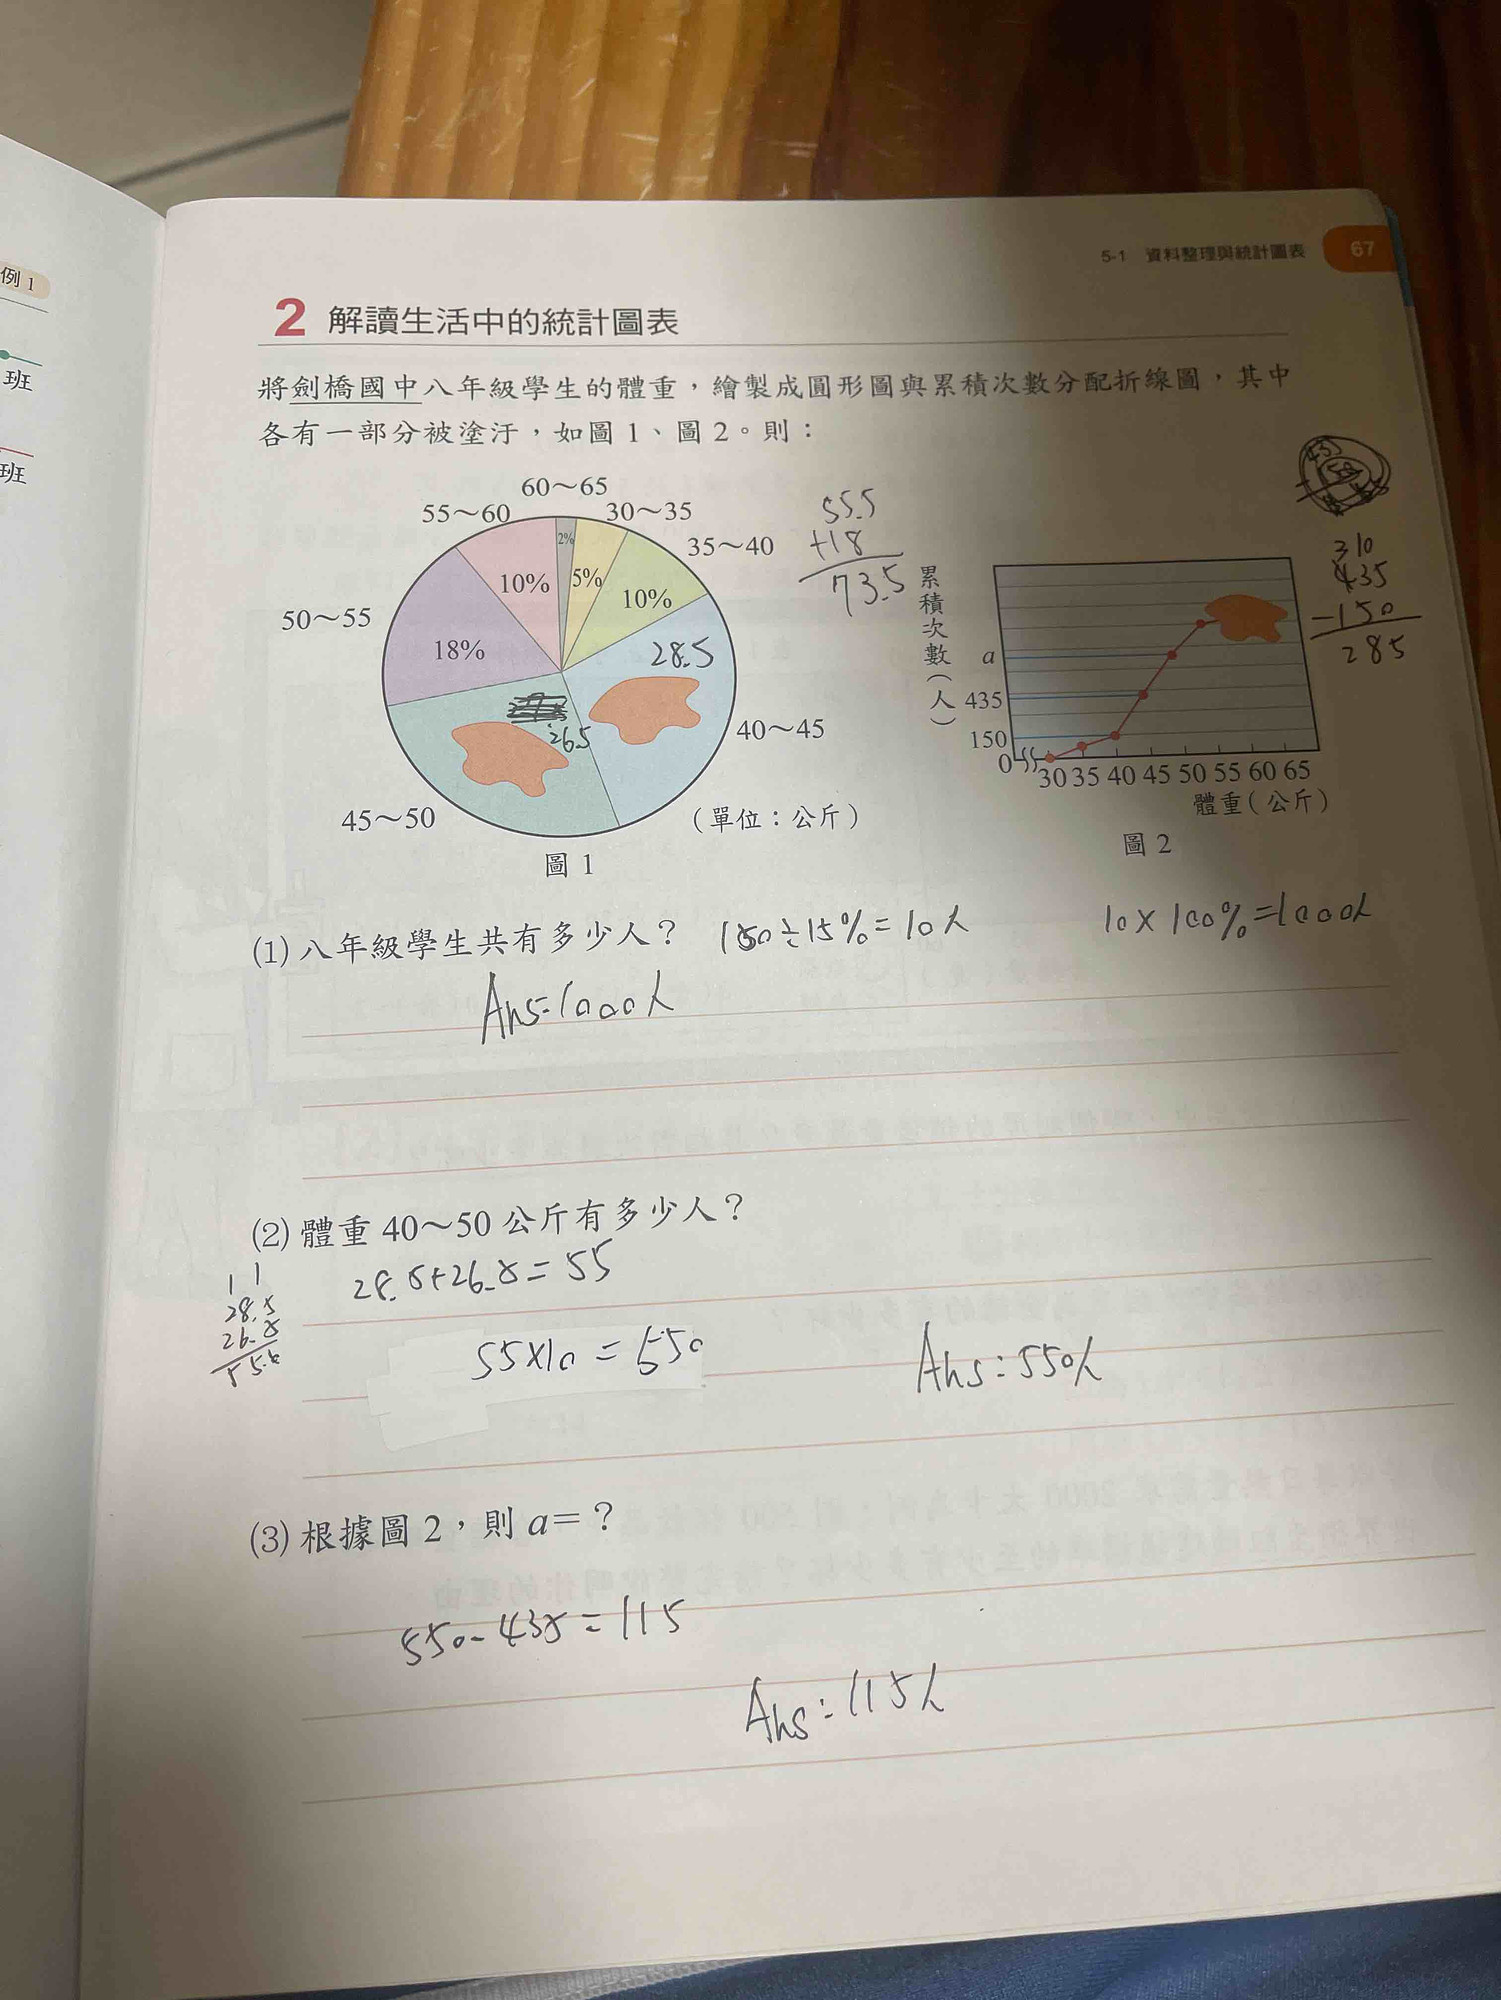 例1
班
班
5-1 資料整理與統計圖表 67
2 解讀生活中的統計圖表
將劍橋國中八年級學生的體重，繪製成圓形圖與累積次數分配折線圖，其中
各有一部分被塗汙，如圖1、圖2。則：
60～65
55～60
30～35
35～40
50～55
2%
10%
5%
10%
18%
28.5
26.5
40～45
45～50
(單位：公斤)
圖1
55.5
+18
73.5
累積次數(人)
a
435
150
0
30 35 40 45 50 55 60 65
體重(公斤)
圖2
310
435
-150
285
(1) 八年級學生共有多少人？ 150÷15%=10人 10×100%=1000人
Ans=1000人
(2) 體重40～50公斤有多少人？
28.5+26.5=55
11
28.5
26.5
55.0
55×10=550
Ans:550人
(3) 根據圖2，則a=？
550-435=115
Ans:115人